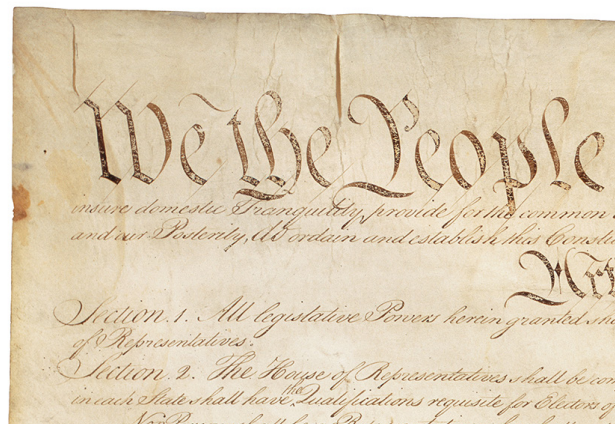 We the People
insure domestic Tranquility, provide for the common
and our Posterity, do ordain and establish this Consti
Art
Section. 1. All legislative Powers herein granted sha
of Representatives.
Section. 2. The House of Representatives shall be com
in each State shall have the Qualifications requisite for Electors of
No Person shall be a Representative who shall not